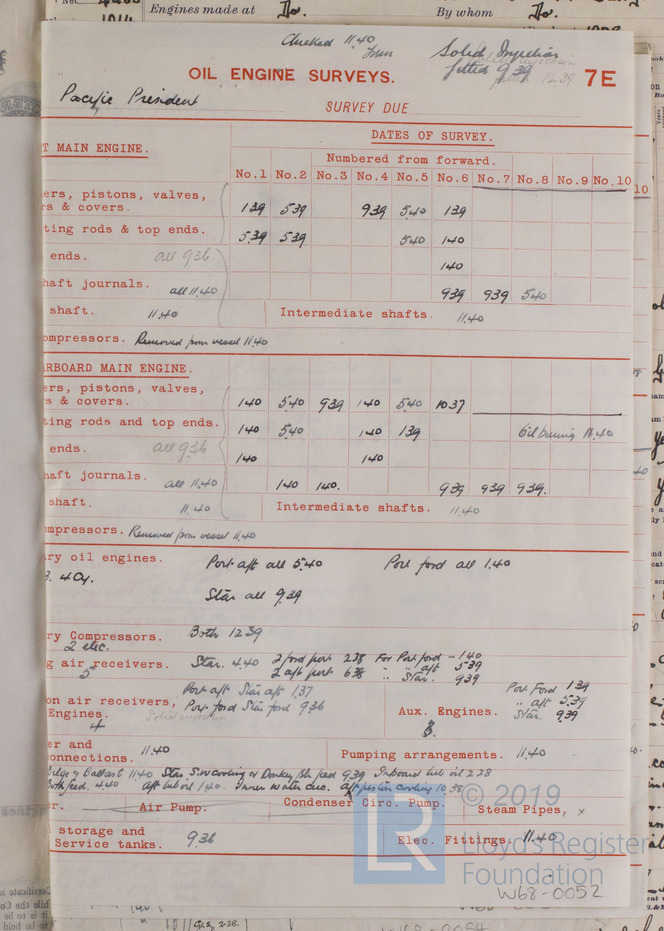 Engines made at Do. By whom Do.
Checked 11.40
Solid Injection
fitted 9.39
OIL ENGINE SURVEYS. 7E
Pacific President
SURVEY DUE
DATES OF SURVEY.
T MAIN ENGINE.
Numbered from forward.
No.1 No.2 No.3 No.4 No.5 No.6 No.7 No.8 No.9 No.10
ers, pistons, valves,
rs & covers. 139 539 939 540 139
ting rods & top ends. 5.39 539 540 140
ends. all 9.36 140
haft journals. all 11.40 939 939 540
shaft. 11.40 Intermediate shafts. 11.40
ompressors. Removed from vessel 11.40
ARBOARD MAIN ENGINE.
ers, pistons, valves,
s & covers. 140 540 939 140 540 1037
ting rods and top ends. 140 540 140 139 Oil burning 11.40
ends. all 9.36 140 140
haft journals. all 11.40 140 140. 939 939 939.
shaft. 11.40 Intermediate shafts. 11.40
mpressors. Removed from vessel 11.40
ry oil engines. Port aft all 5.40 Port ford all 1.40
3. 4 Cy.
Star all 9.39
ry Compressors. Both 1239
2 elec.
g air receivers. Star. 4.40 2 ford port 238 For Port ford - 140
5 2 aft port 638 " " aft 539
" Star. 939
on air receivers, Port aft Star aft 1.37 Port Ford 139
Engines. Port ford Star ford 936 Aux. Engines. " aft 5.39
4 Star. 9.39
er and
onnections. 11.40 Pumping arrangements. 11.40
Bilge & Ballast 1140 Star S.W cooling & Donkey blr feed 9.39 Inboard lub oil 238
Both feed. 4.40 Aft lub oil 1.40. Inner water circ. Aft piston cooling 10.38
r. Air Pump. Condenser Circ. Pump. Steam Pipes, x
storage and
Service tanks. 936 Elec. Fittings. 11.40
© 2019
LR
Lloyd's Register
Foundation
W68-0052